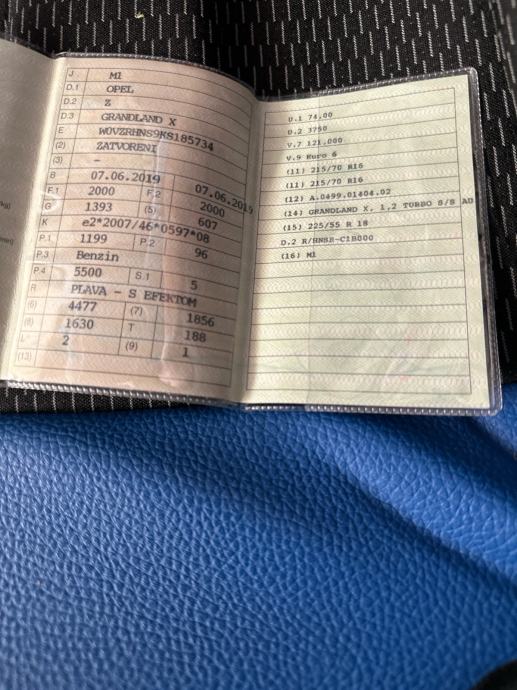 J M1
D.1 OPEL
D.2 Z
D.3 GRANDLAND X
E W0VZRHNS9KS185734
(2) ZATVORENI
(3) -
B 07.06.2019 07.06.2019
F.1 2000 F.2 2000
G 1393 (5) 607
K e2*2007/46*0597*08
P.1 1199 P.2 96
P.3 Benzin
P.4 5500 S.1 5
R PLAVA - S EFEKTOM
(6) 4477 (7) 1856
(8) 1630 T 188
L 2 (9) 1
(13)
U.1 74,00
U.2 3750
V.7 121,000
V.9 Euro 6
(11) 215/70 R16
(11) 215/70 R16
(12) A.0499.01404.02
(14) GRANDLAND X, 1,2 TURBO S/S AD
(15) 225/55 R 18
D.2 R/HNSR-C1B000
(16) M1